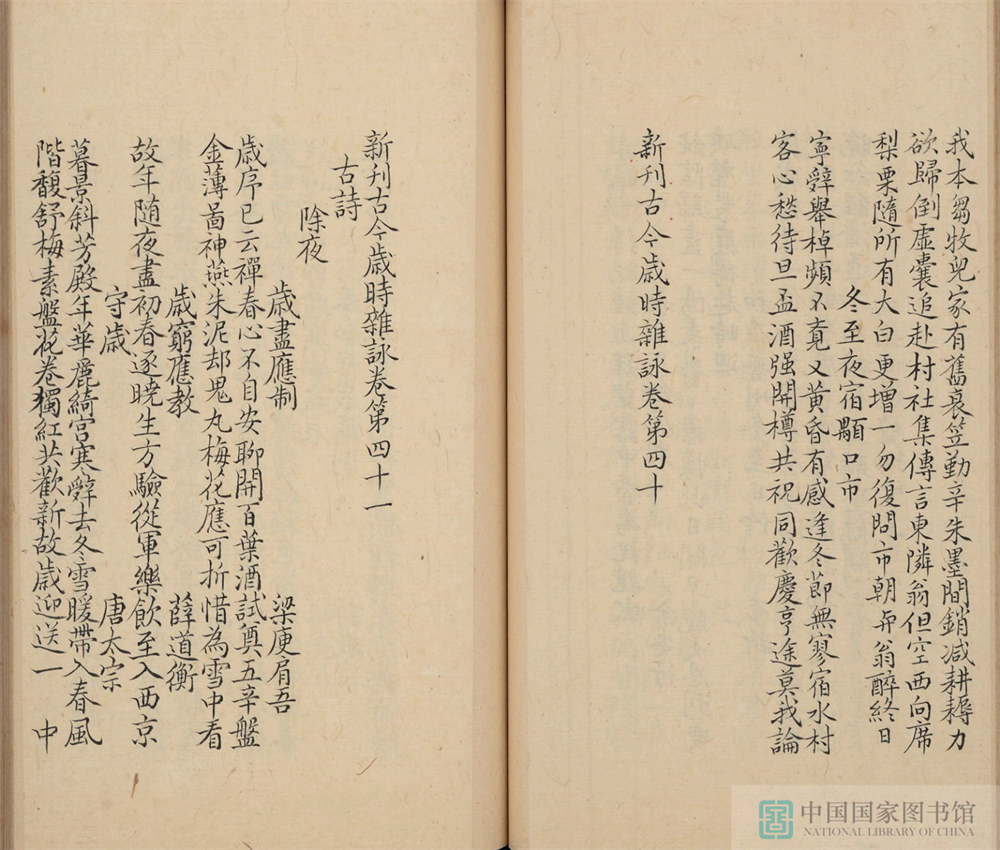 我本芻牧兒家有舊蓑笠勤辛朱墨間銷减耕耨力
欲歸倒虛囊追赴村社集傳言東隣翁但空西向席
梨栗隨所有大白更增一勿復問市朝弄翁醉終日
冬至夜宿顯口市
寧辭舉棹頻不竟又黃昏有感逢冬莭無寥宿水村
客心愁待旦盃酒强開樽共祝同歡慶亨途莫我論
新刊古今歲時雜詠卷第四十
新刊古今歲時雜詠卷第四十一
古詩
除夜
歲盡應制 梁庾肩吾
歲序已云禪春心不自安聊開百葉酒試奠五辛盤
金薄啚神燕朱泥却鬼丸梅花應可折惜為雪中看
歲窮應教 薛道衡
故年随夜盡初春逐曉生方驗從軍樂飲至入西京
守歲 唐太宗
暮景斜芳殿年華麗綺宮寒辭去冬雪暖帶入春風
階馥舒梅素盤花卷獨紅共歡新故歲迎送一 中
中国国家图书馆
NATIONAL LIBRARY OF CHINA